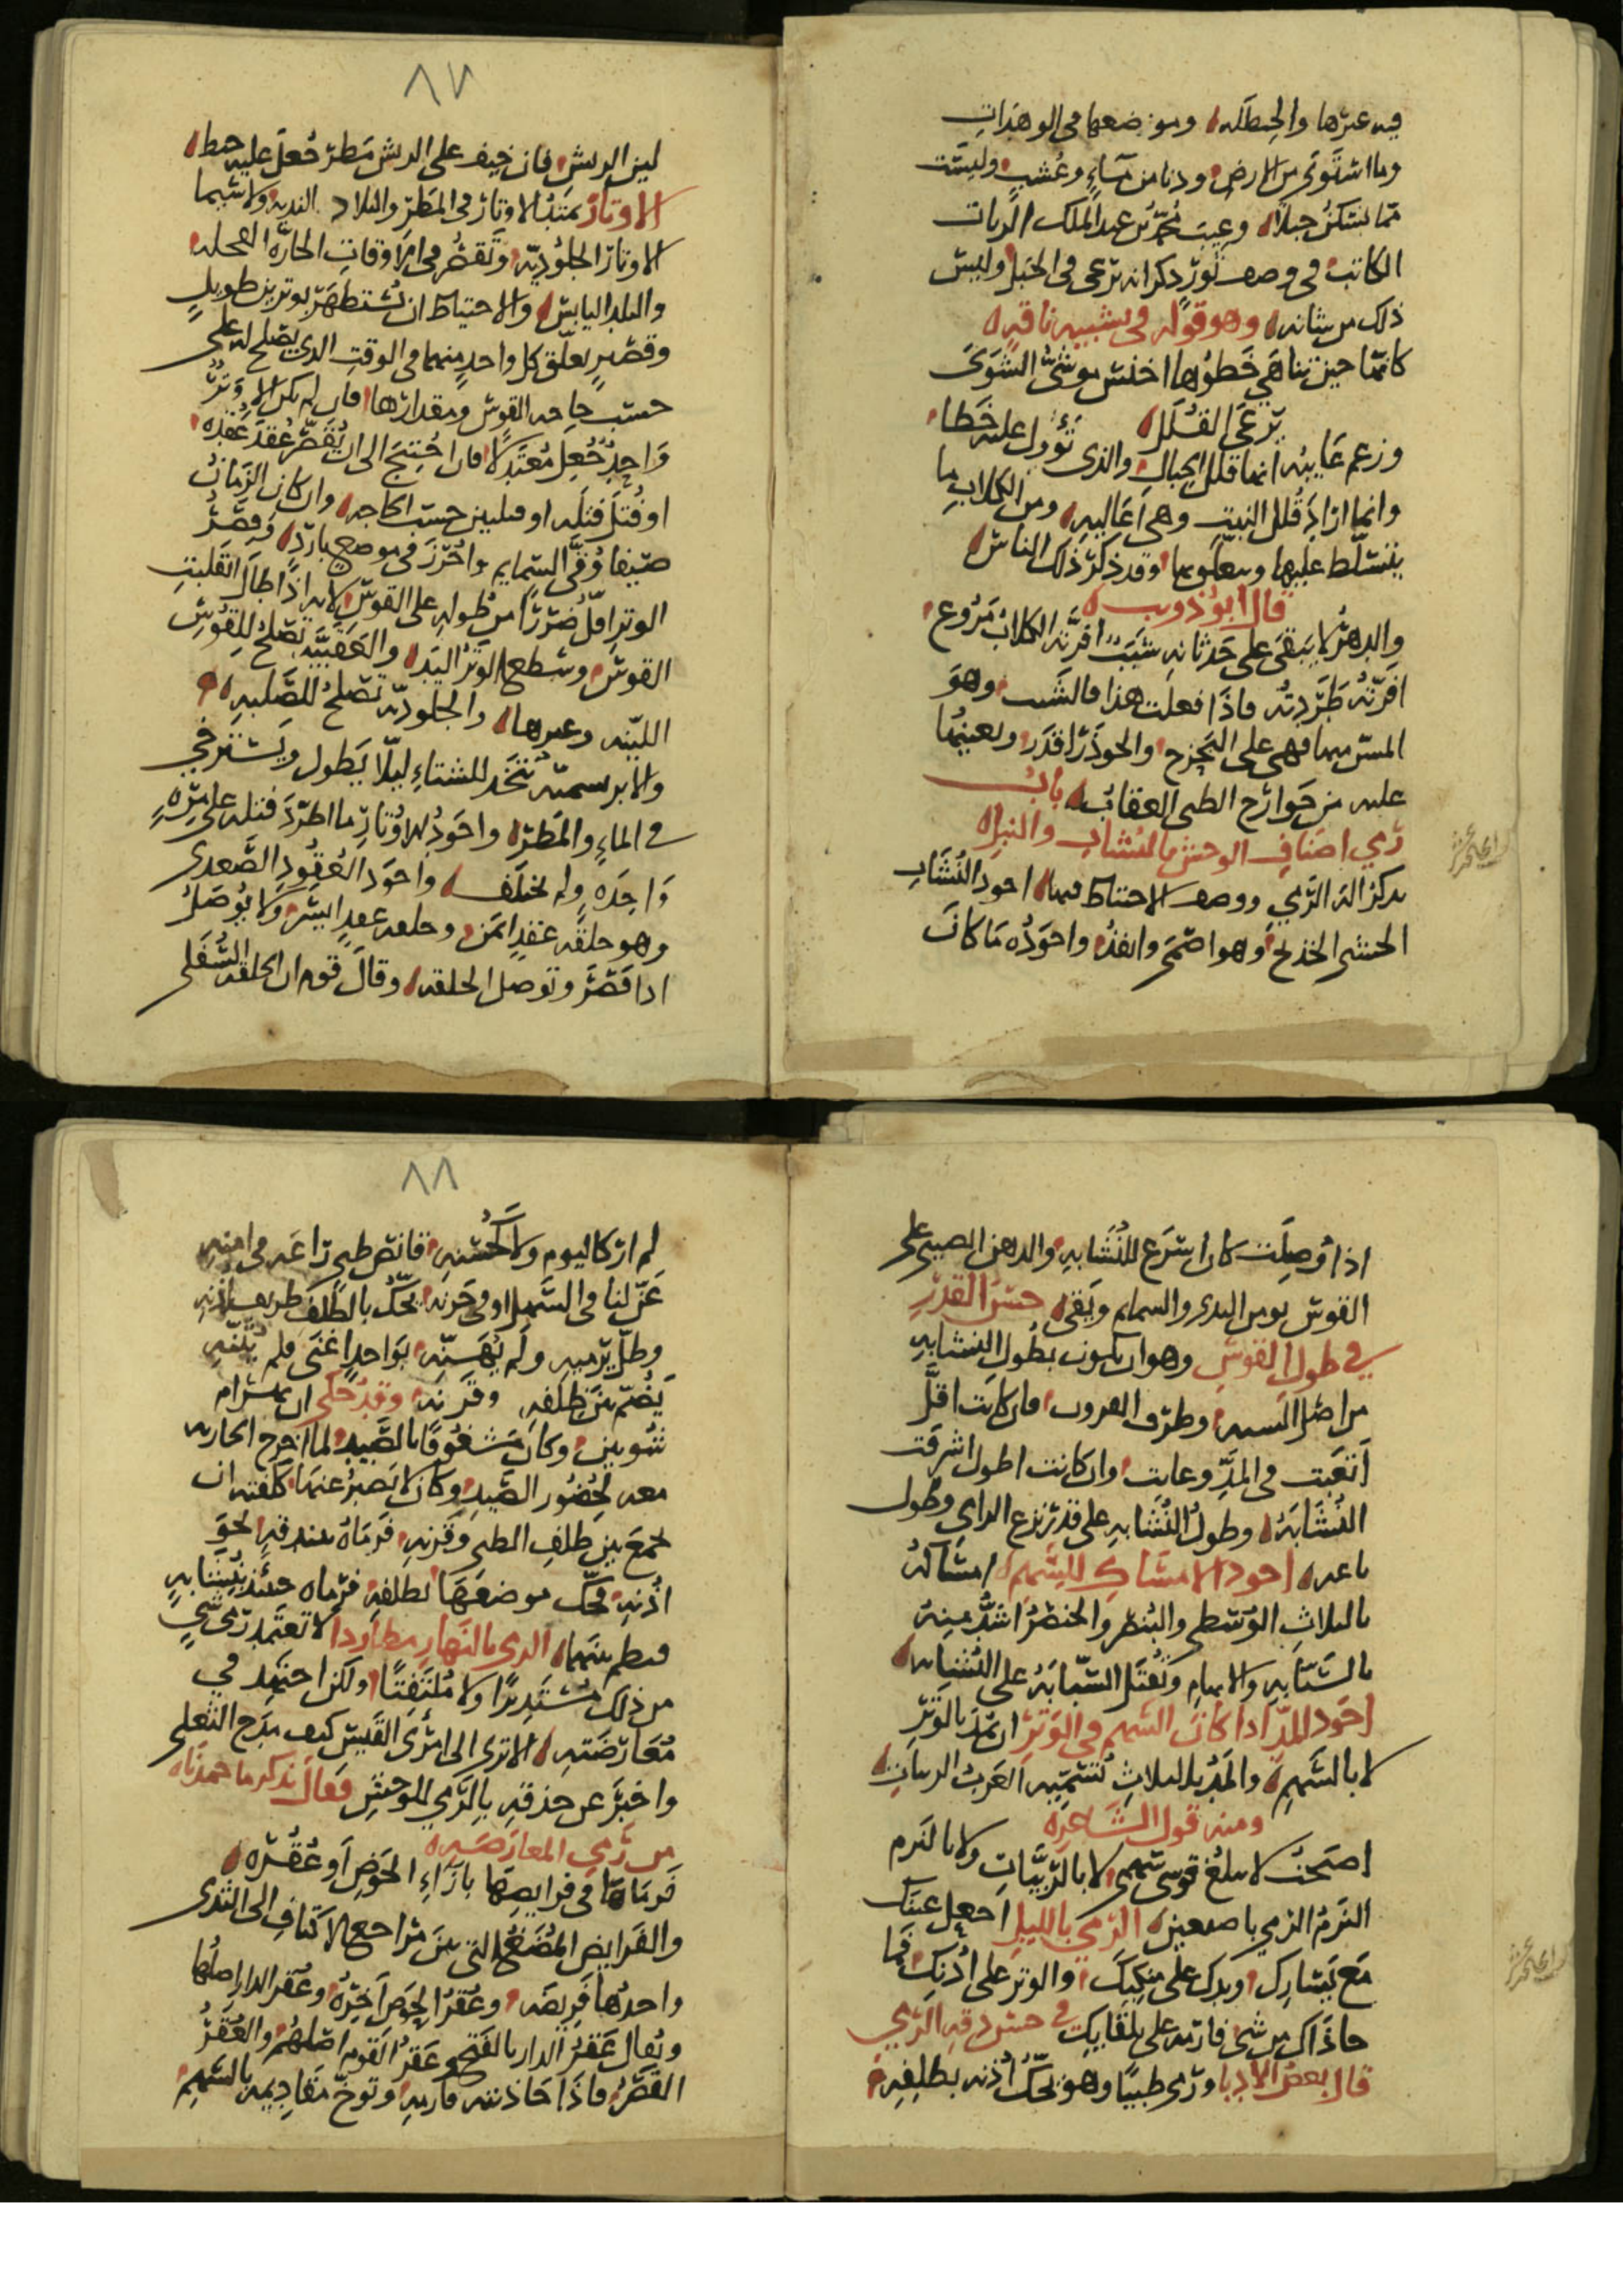 فيه عيرها والحنطله ومواضعها في الوهدات
وما استوى من الارض ودنا من ماء وعشب وليست
مما يسكن جبلا وعيب محمد بن عبد الملك الزيات
الكاتب في وصف ثور ذكر انه يرعى في الجبل وليس
ذلك من شانه وهو قوله في تشبيه ناقته
كانها حين تناهى خطوها اخنس موشى الشوى
يرعى القلل
وزعم عايبه انها قلل الجبال والذى تؤول عليه خطا
وانما اراد قلل النبت وهى اعاليه ومن الكلاب ما
يتسلط عليها وقد ذكر ذلك الناس
قال ابو ذويب
والدهر لا يبقى على حدثانه شبب افزته الكلاب مروع
افزته طردته فاذا فعلت هذا بالشبب وهو
المسن منها فهى على البحزج والجوذر اقدر ويعينها
عليه من جوارح الطير العقاب باب
رمي اصناف الوحش بالنشاب والنبل
نذكر الة الرمي ووصف الاحتياط فيها اجود النشاب
الخشب الخلنج وهو اصمها وانفذه واجوده ما كان
٨٧
لين الريش فان خيف على الريش مطر جعل عليه
الاوتار تمتد الاوتار في المطر والبلاد النديه ولا سيما
الاوتار الجلوديه وتقصر في الاوقات الحاره
والبلد اليابس والاحتياط ان يستظهر بوترين طويل
وقصير يعلق كل واحد منهما في الوقت الذى يصلح له على
حسب حاجه القوس ومقدارها فان لم يكن الا وتر
واحد جعل معتدلا فان احتيج الى ان يقصر عقد عقده
او فتل فتله او فتلتين حسب الحاجه وان كان الزمان
صيفا وقي السمايم واحرز في موضع بارد وقصر
الوتر اقل ضررا من طوله على القوس لانه اذا طال انقلبت
القوس وسطح الوتر اليد والعقبيه تصلح للقوس
اللينه وغيرها والجلوديه تصلح للصلبه
والابريسميه تتخذ للشتاء ليلا يطول ويسترخي
في الماء والمطر واجود الاوتار ما اطرد فتله على مره
واحده ولم يختلف واجود العقود الصعدى
وهو حلقه عقد ايمن وحلقه عقد ايسر ولا يوصل
اذا قصر وتوصل الحلقه وقال قوم ان الحلقه السفلى
اذا وصلت كان اسرع للنشابه والدهن الصينى على
القوس يومن الندى والسمايم ويقى حسن القدر
في طول القوس وهو ان يكون بطول النشابه
من اصل السيه وطرف القرون فان كانت اقل
اتعبت في المد وعابت وان كانت اطول اشرفت
النشابه وطول النشابه على قدر نزع الرامي وطول
باعه اجود الامساك للسهم امساكه
بالثلاث الوسطى والبنصر والخنصر اشد منه
بالسبابه والابهام وتعتمل السبابه على النشابه
اجود المد اذا كان السهم في الوتر ان تمد بالوتر
لا بالسهم والمد بالثلاث تسميه العرب الربيات
ومنه قول الشاعر
اصبحت لا يبلغ قوسى سهمى لا بالربيات ولا بالبزم
البزم الرمي باصبعين الرمي بالليل اجعل عينك
مع يسارك ويدك على منكبك والوتر على اذنك فما
حاذاك من شى فارمه على يلقابك في حسن دقه الرمي
قال بعض الادبا ورمى ظبيا وهو يحك اذنه بظلفه
٨٨
لم ار كاليوم ولا كحسنه قانص ظبى راعه في امنه
عن لنا في السهل او في حزنه يحك بالظلف طريف اذنه
وظل يرميه ولم يهنه بواحد اغنى فلم يثنه
يضم بين ظلفه وقرنه وقد حكى ان بهرام
شوبين وكان مشغوفا بالصيد لما اخرج الجاريه
معه لحضور الصيد وكان لا يصبر عنها كلفته ان
يجمع بين ظلف الظبى وقرنه فرماه ببندقه نحو
اذنه فحك موضعها بظلفه فرماه حينئذ بنشابه
فنظم بينهما الرمي بالنهار مطاردا لا تعتمد رمي شي
من ذلك مستديرا ولا ملتفتا ولكن اجتهد في
معارضته الا ترى الى امرئ القيس كيف مدح الثعلى
واخبر عن حذقه بالرمي للوحش فقال نذكر ما حمدناه
من رمي المعارضه
فرماها في فرايصها بازاء الحوض او عقره
والفرايص المضغ التى بين مراجع الاكتاف الى الثدى
واحدها فريصه وعقر الحوض اخره وعقر الدار اصلها
ويقال عقر الدار بالفتح وعقر القوم اصلهم والعقر
القصر فاذا حاذتنه فارمه وتوخ مقاديمه بالسهم